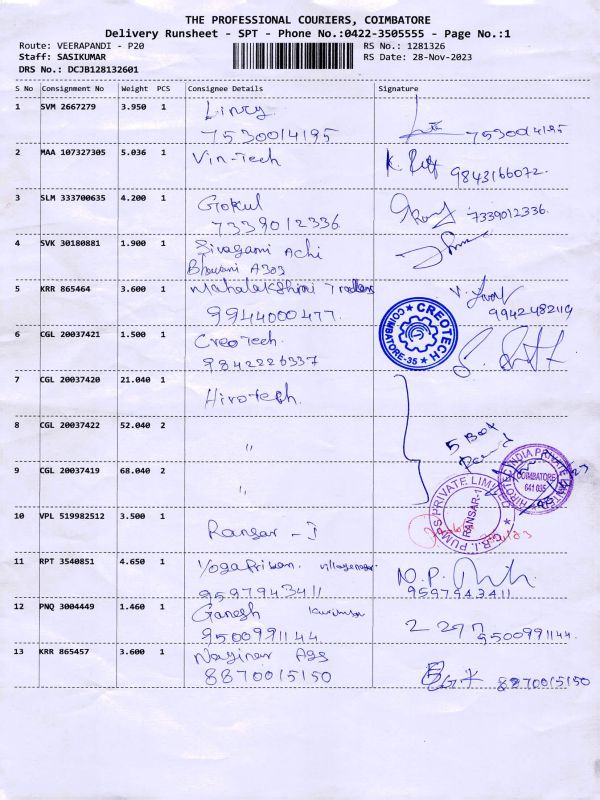 THE PROFESSIONAL COURIERS, COIMBATORE
Delivery Runsheet - SPT - Phone No.:0422-3505555 - Page No.:1
Route: VEERAPANDI - P20 RS No.: 1281326
Staff: SASIKUMAR RS Date: 28-Nov-2023
DRS No.: DCJB128132601
S No Consignment No Weight PCS Consignee Details Signature
1 SVM 2667279 3.950 1 Lincy
7530014195 7530014195
2 MAA 107327305 5.036 1 Vin-Tech 9843166072.
3 SLM 333700635 4.200 1 Gokul
7339012336 7339012336.
4 SVK 30180881 1.900 1 Sivagami Achi
Bhavani A303
5 KRR 865464 3.600 1 Mahalakshmi Traders
9944000477. 9942482119
CREOTECH
COIMBATORE-35
6 CGL 20037421 1.500 1 Creotech.
9842226337
7 CGL 20037420 21.040 1 Hirotech.
8 CGL 20037422 52.040 2 "
5 Box
9 CGL 20037419 68.040 2 "
HIROTEC INDIA PRIVATE
COIMBATORE
641 035
C.R.I. PUMPS PRIVATE LIMITED
RANSAR-1
10 VPL 519982512 3.500 1 Ransar - I
11 RPT 3540851 4.650 1 Yogapriban. villagenagar
9597943411 9597943411
12 PNQ 3004449 1.460 1 Ganesh
9500991144 2297 9500991144.
13 KRR 865457 3.600 1 Naginar Ags
8870015150 8870015150